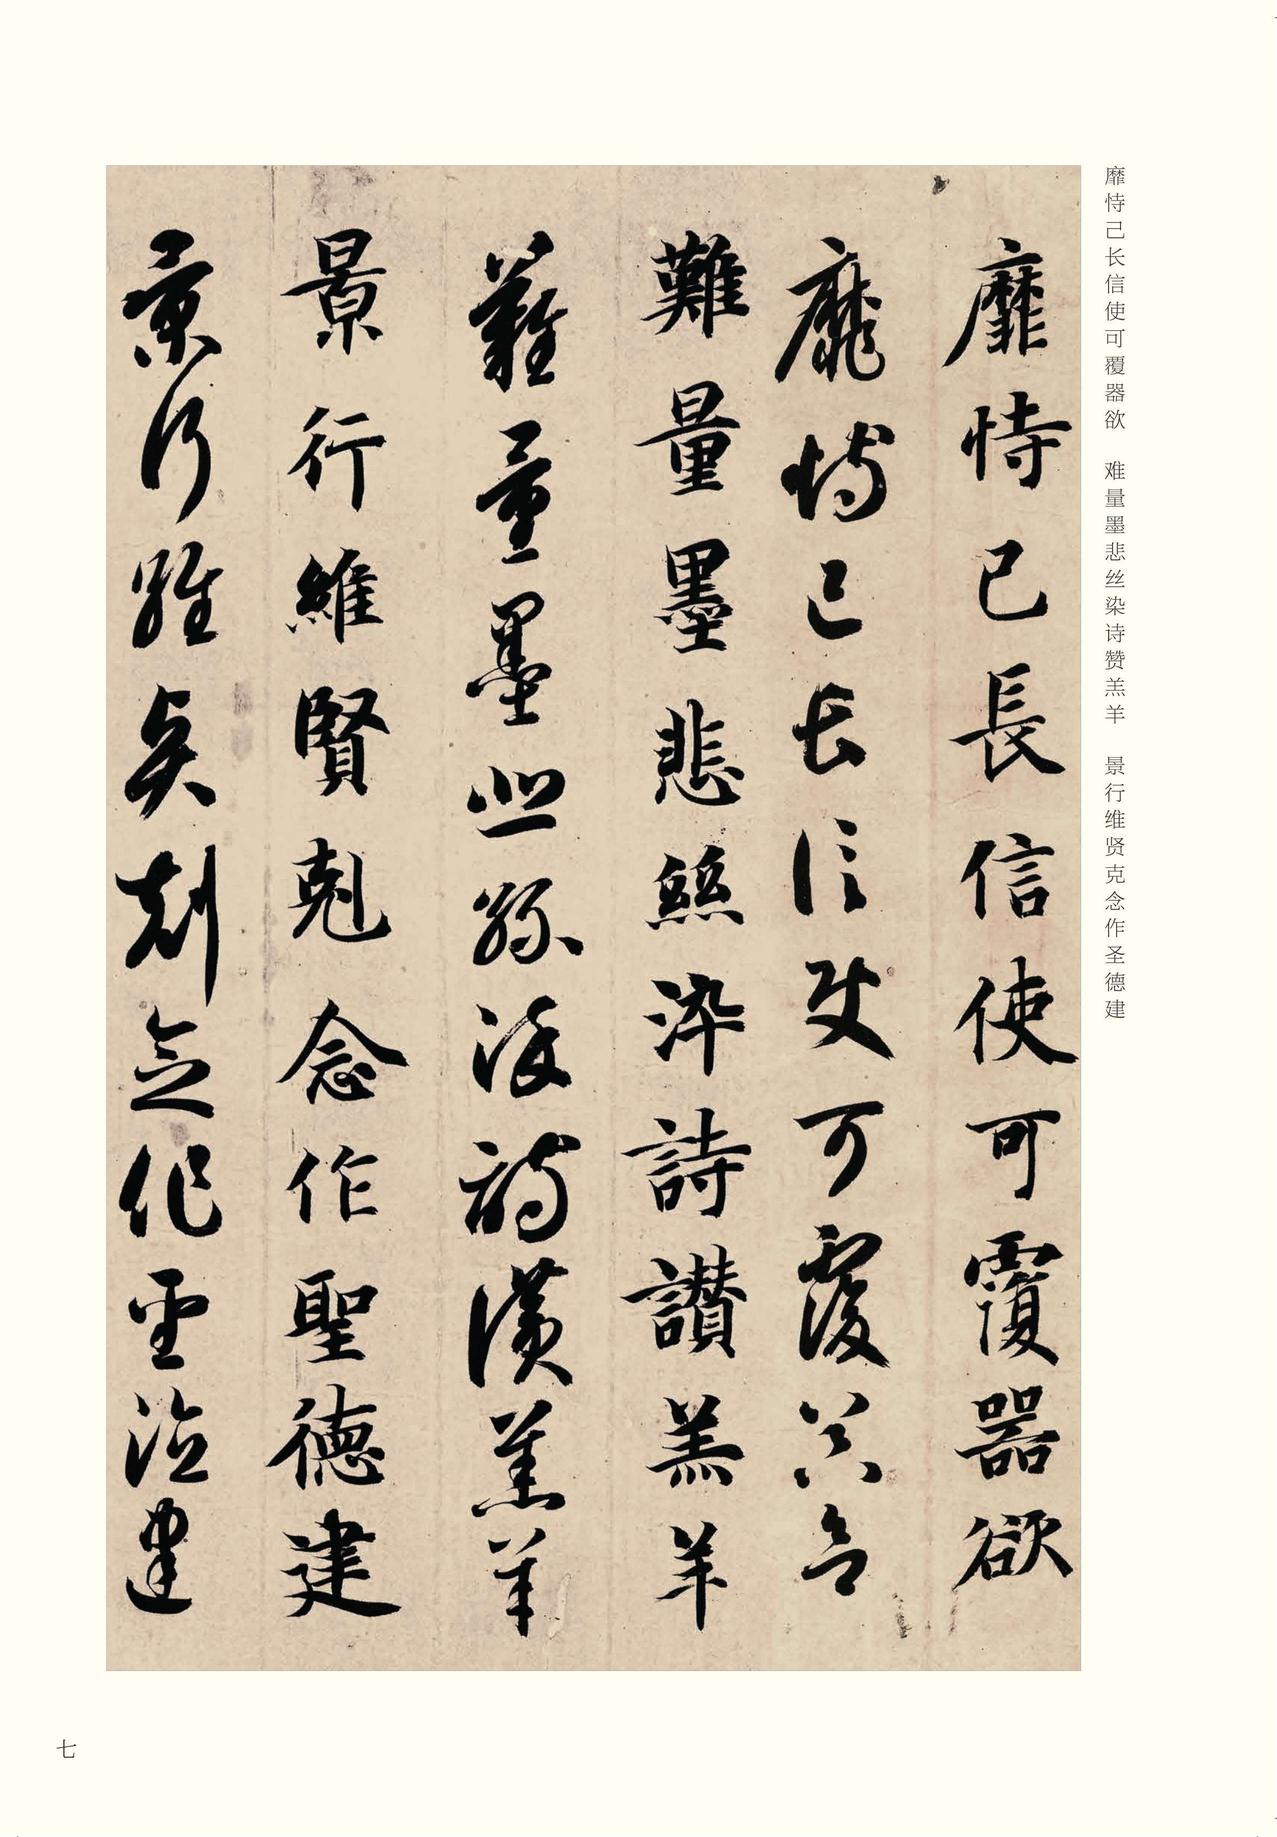 靡恃己长信使可覆器欲　难量墨悲丝染诗赞羔羊　景行维贤克念作圣德建
靡恃己長信使可覆器欲
靡恃己長信使可覆器欲
難量墨悲絲染詩讚羔羊
難量墨悲絲染詩讚羔羊
景行維賢剋念作聖德建
景行維賢剋念作聖德建
七